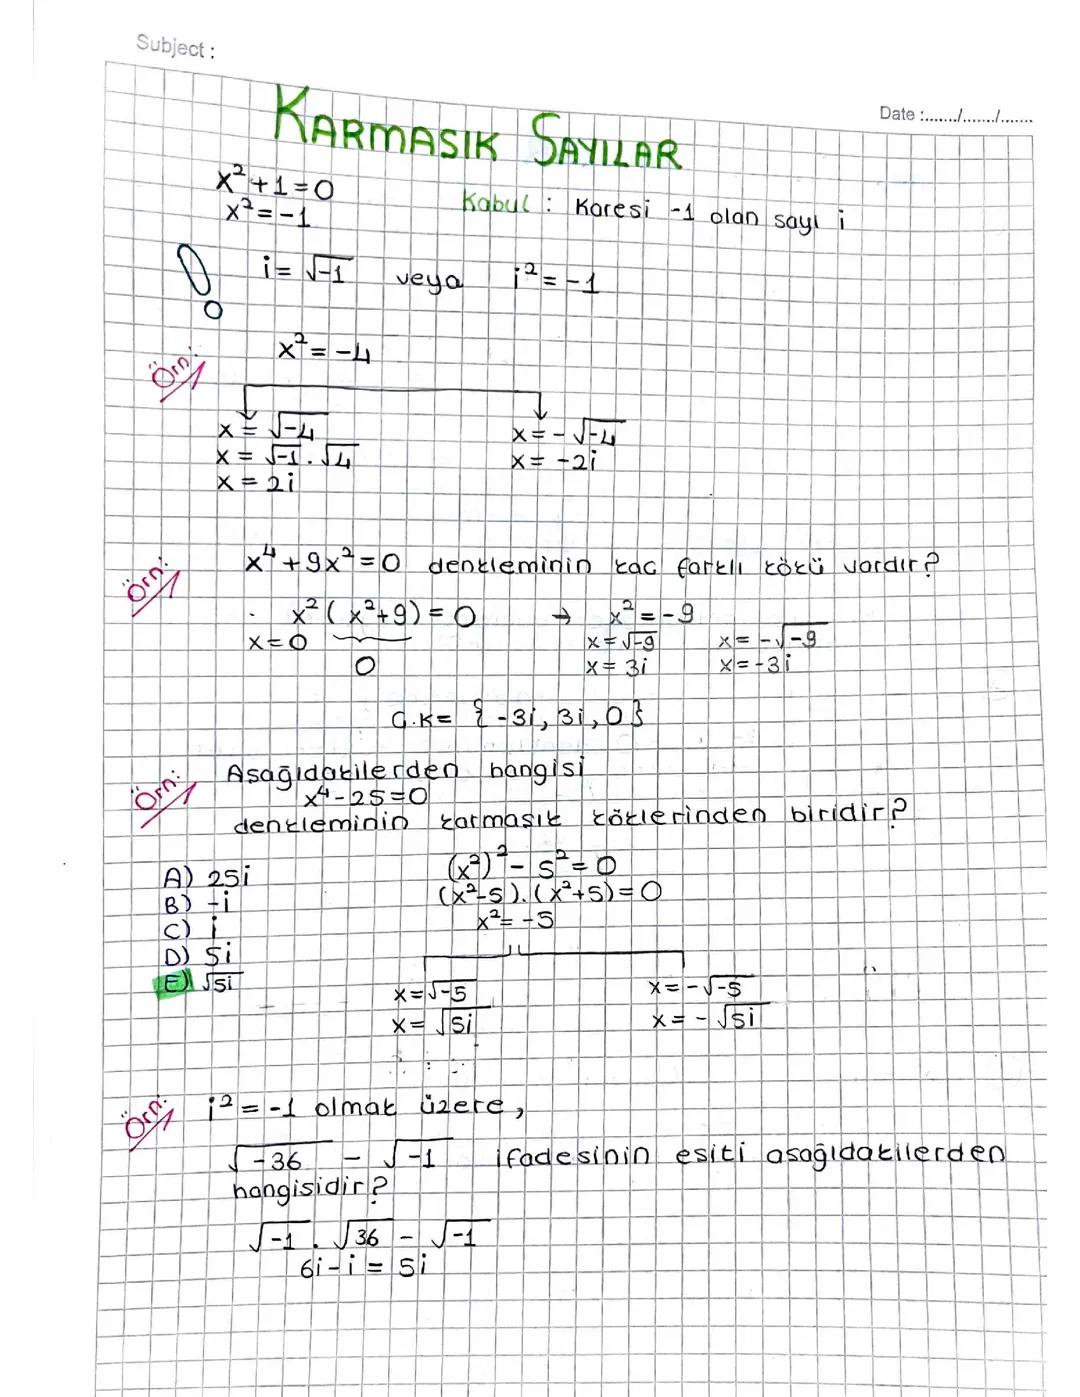 Subject :
Date :......./......./.......
KARMASIK SAYILAR
x²+1=0
x²=-1
Kabul : Karesi -1 olan sayı i
i=√-1 veya i²=-1
Örn: x²=-4
x=√-4 x=-√-4
x=√-1.√4 x=-2i
x=2i
Örn: x⁴+9x²=0 denkleminin kac farklı kökü vardır?
x²(x²+9)=0 → x²=-9
x=0 x=√-9 x=-√-9
0 x=3i x=-3i
Ç.K= {-3i, 3i, 0}
Örn: Asağıdakilerden hangisi
x⁴-25=0
denkleminin karmasık köklerinden biridir?
A) 25i
B) -i
C) i
D) 5i
E) √5i
(x²)²-5²=0
(x²-5).(x²+5)=0
x²=-5
x=√-5 x=-√-5
x=√5i x=-√5i
Örn: i²=-1 olmak üzere,
√-36 - √-1 ifadesinin esiti asağıdakilerden
hangisidir?
√-1.√36 - √-1
6i-i=5i